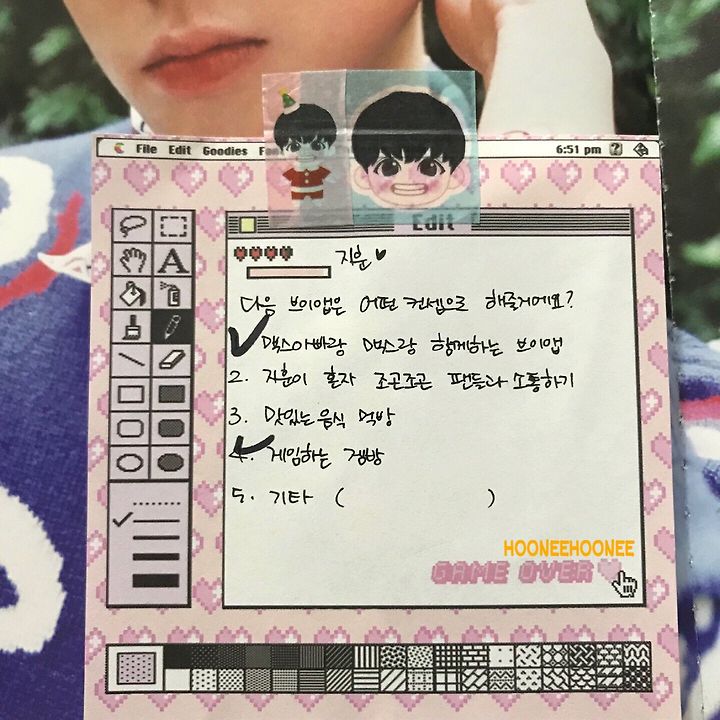 File Edit Goodies 6:51 pm ?
Edit
지훈♥
다음 브이앱은 어떤 컨셉으로 해줄거에요?
맥스아빠랑 맥스랑 함께하는 브이앱
2. 지훈이 혼자 조곤조곤 팬들과 소통하기
3. 맛있는 음식 먹방
4. 게임하는 겜방
5. 기타 ( )
HOONEEHOONEE
GAME OVER
A